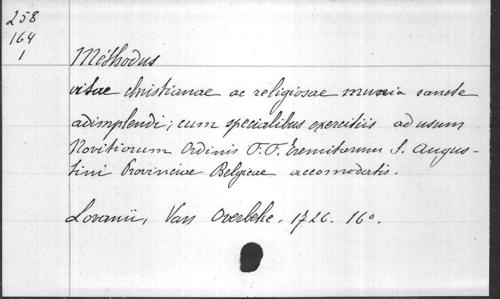 258
164
1
Méthodus
vitae christianae ac religiosae munia sancte
adimplendi; cum specialibus exercitiis ad usum
Novitiorum Ordinis F.F. Eremitarum S. Augus-
tini Provinciae Belgicae accomodatis.
Lovanii, Van Overbeke. 1726. 16°.